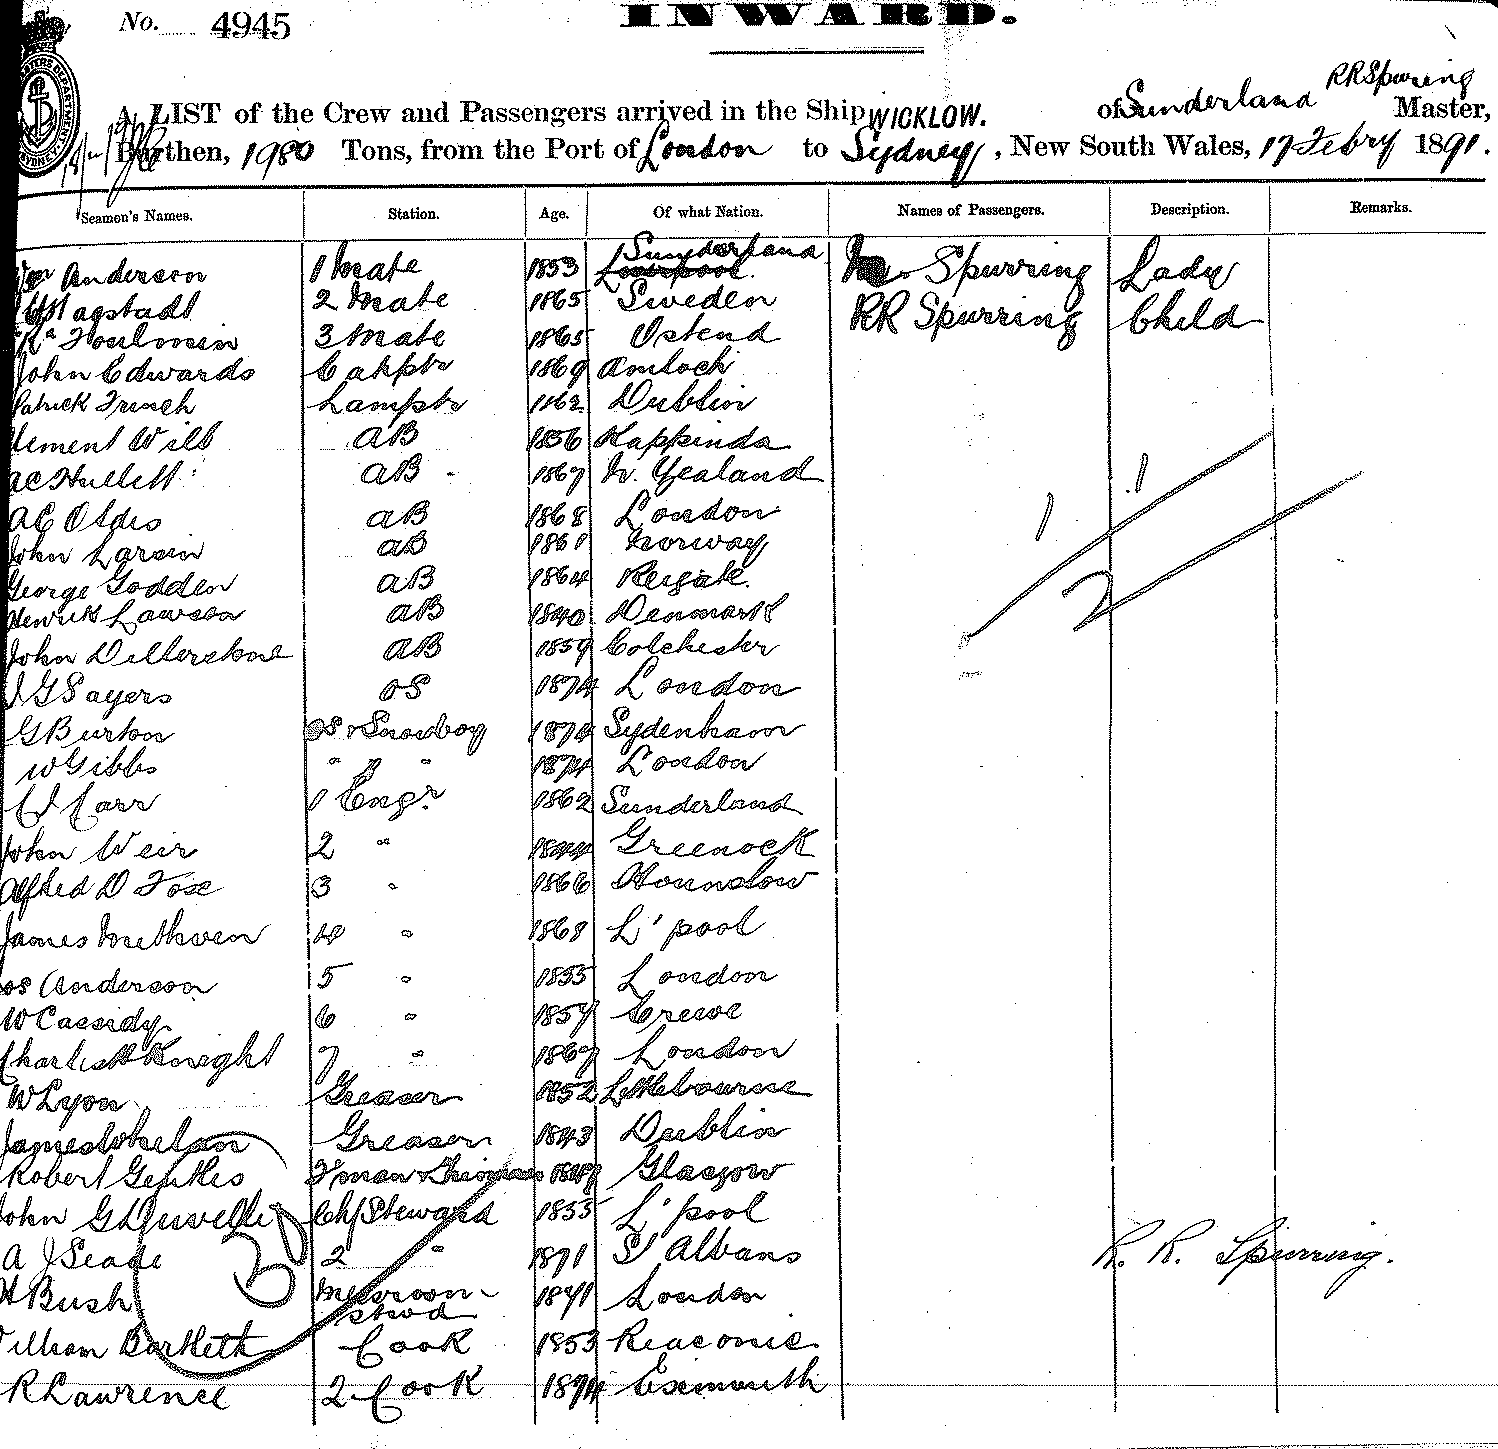 No. 4945
INWARD.
RRSpurring
A LIST of the Crew and Passengers arrived in the Ship WICKLOW. of Sunderland Master,
Burthen, 1980 Tons, from the Port of London to Sydney, New South Wales, 17 Febry 1891.
Seamen's Names. Station. Age. Of what Nation. Names of Passengers. Description. Remarks.
Wm Anderson 1 Mate 1853 Liverpool. Sunderland Mrs Spurring Lady
Hagstadt 2 Mate 1865 Sweden RR Spurring Child
Toulmin 3 Mate 1865 Ostend
John Edwards Carptr 1869 Amloch
Patrick French Lamptr 1862 Dublin
Clement Will AB 1856 Kappinda
AC Hullett AB 1867 N. Zealand
AC Oldis AB 1868 London
John Larsin AB 1861 Norway
George Godden AB 1864 Reigate.
Henrick Lawson AB 1840 Denmark
John Dellerstone AB 1859 Colchester
JG Sayers OS 1874 London
G Burton OS & Snowboy 1874 Sydenham
W Gibbs " " " 1874 London
CJ Carr 1 Engr 1862 Sunderland
John Weir 2 " 1844 Greenock
Alfred D Fose 3 " 1866 Hounslow
James Methven 4 " 1868 L'pool
Jos Anderson 5 " 1855 London
W Cassidy 6 " 1859 Crewe
Charles H Knight 7 " 1867 London
W Lyon Greaser 1852 Littlebourne
James Whelan Greaser 1843 Dublin
Robert Gentles Fman & Trimmer Glasgow
John G Duvelle Chf Steward 1855 L'pool
A J Seade 2 " 1871 St Albans
H Bush Messroom stwd 1871 London
William Bartlett Cook 1853
R Lawrence 2 Cook 1874 Exmouth
1 1
2
30
R. R. Spurring.